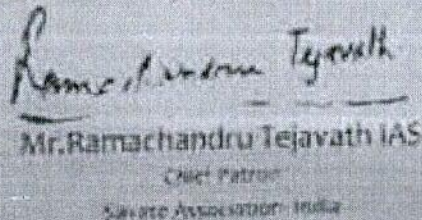 Ramachandru Tejavath
Mr.Ramachandru Tejavath IAS
Chief Patron
Savate Association India